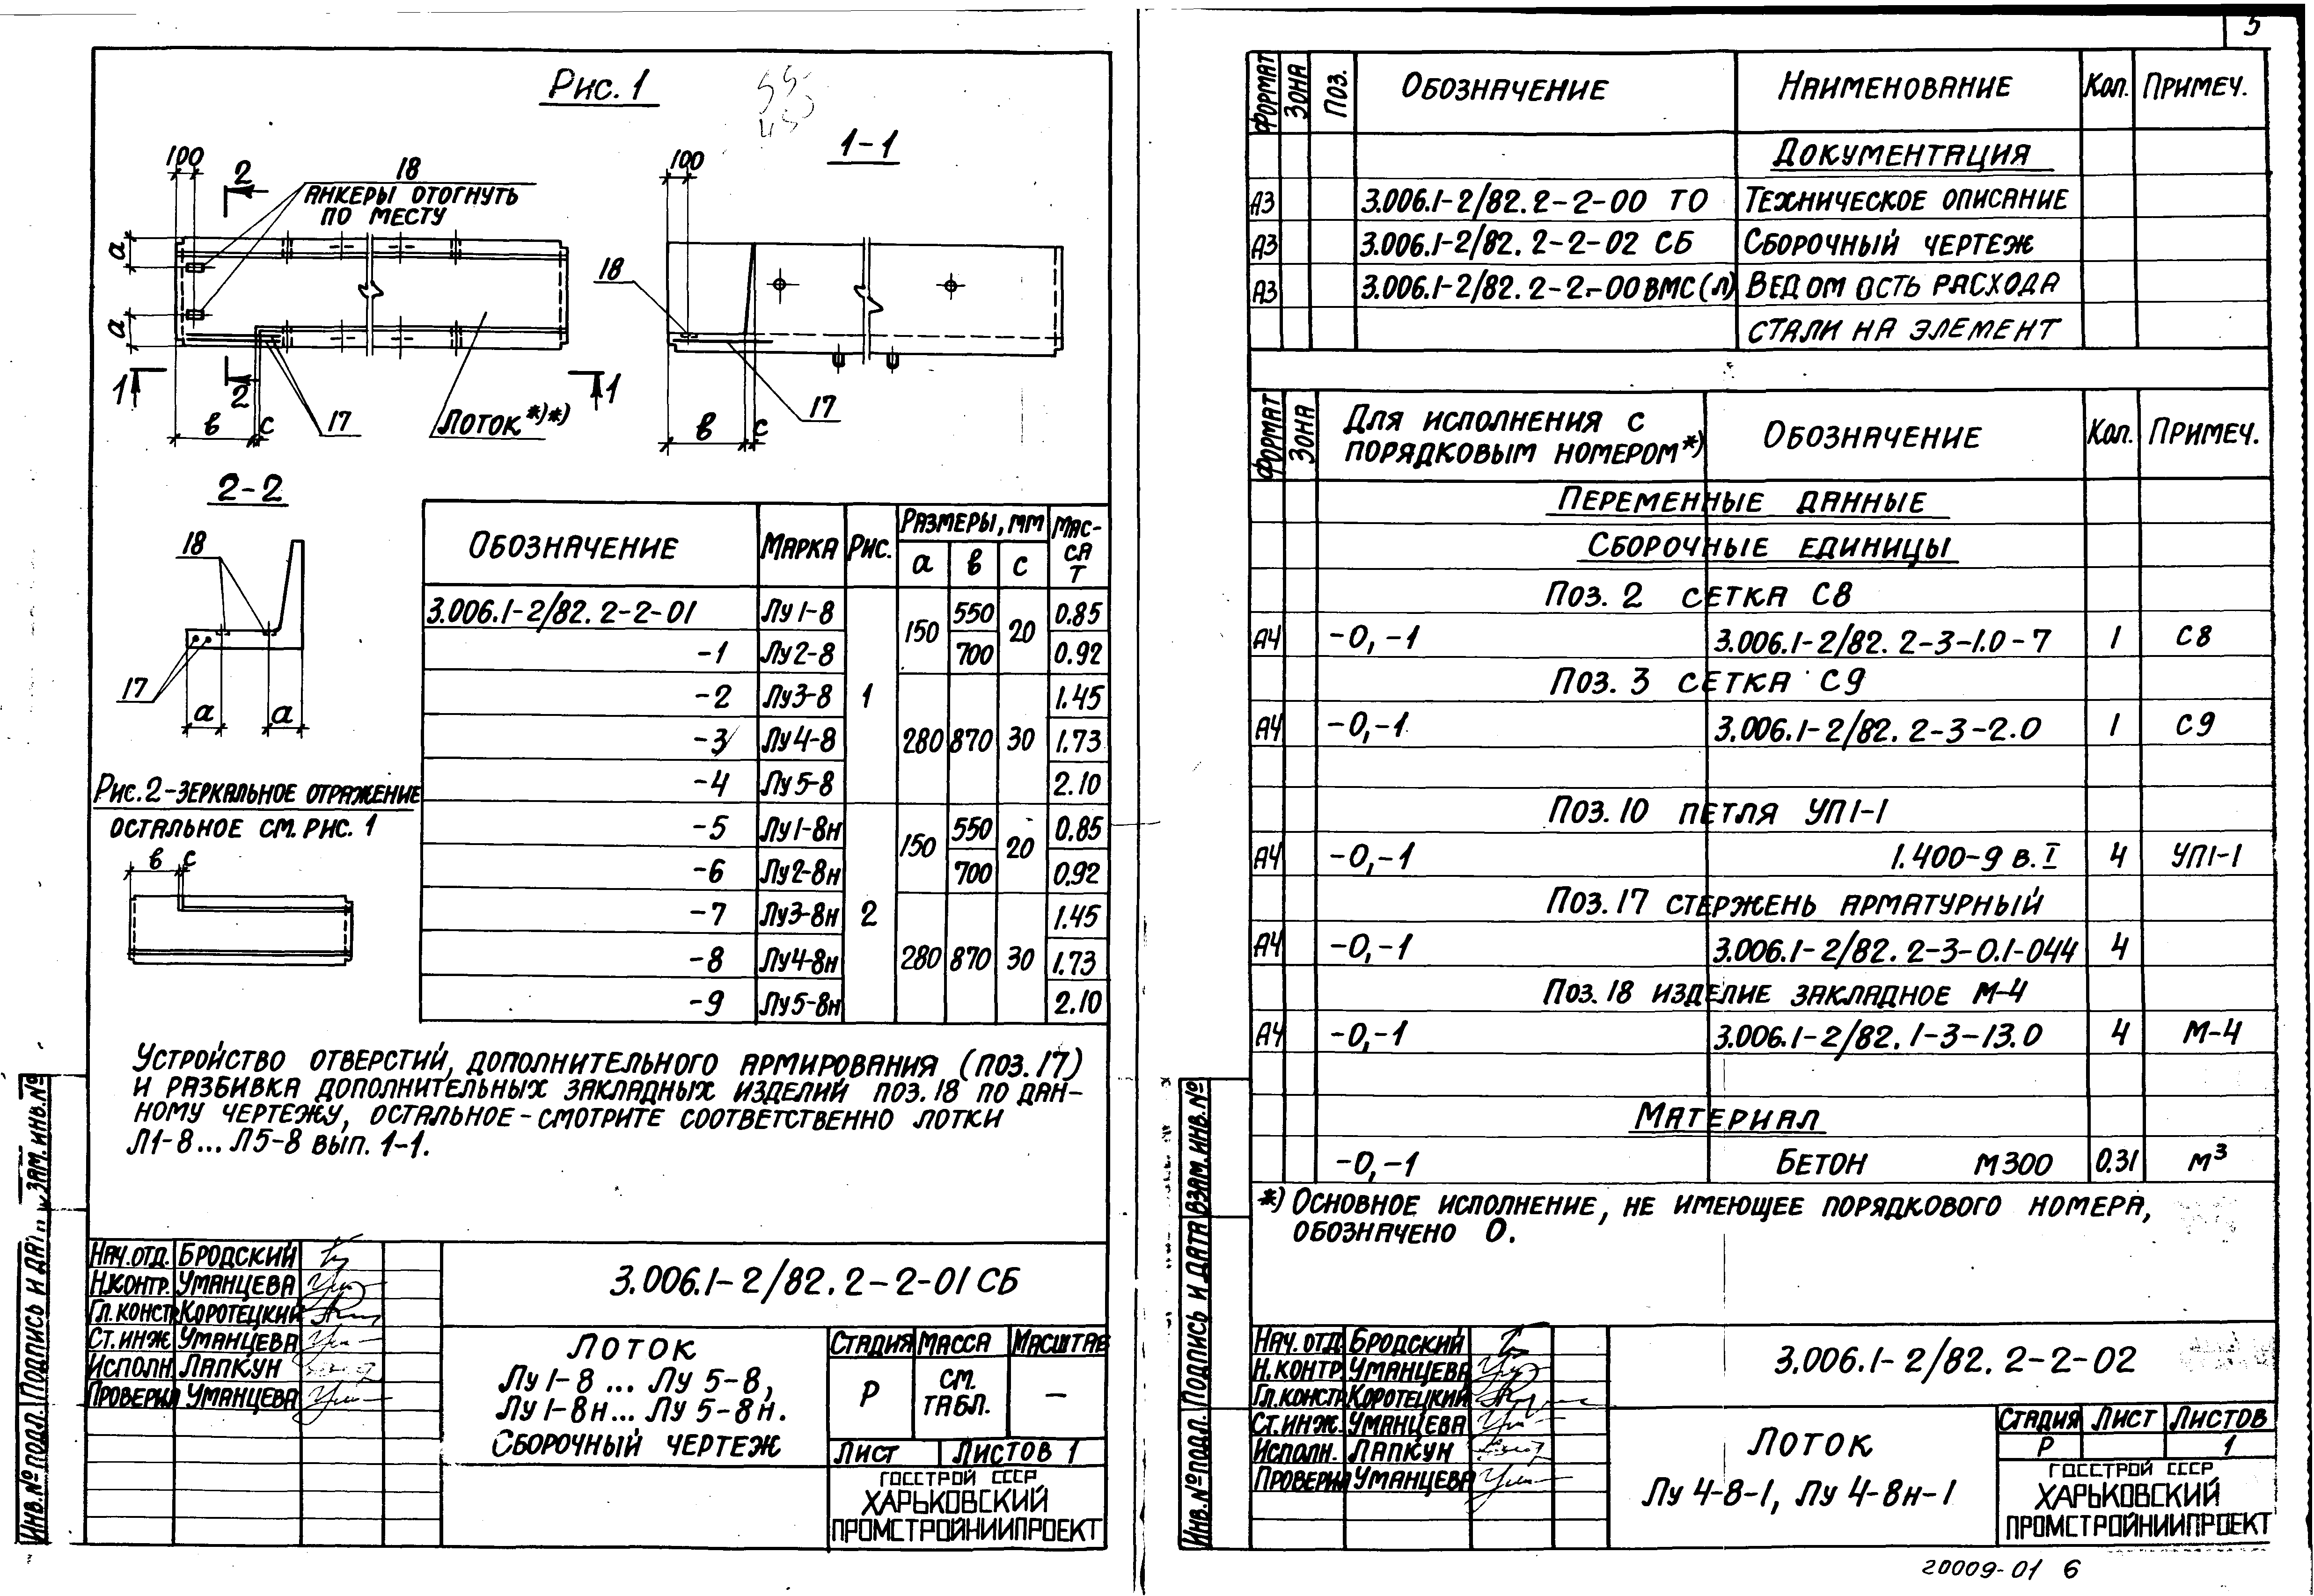 Рис. 1
1-1
100
2
18
АНКЕРЫ ОТОГНУТЬ
ПО МЕСТУ
100
а
а
18
1
2
1
в
с
17
ЛОТОК*)*)
в
с
17
2-2
18
17
а
а
Рис. 2 - ЗЕРКАЛЬНОЕ ОТРАЖЕНИЕ
ОСТАЛЬНОЕ СМ. РИС. 1
в
с
ОБОЗНАЧЕНИЕ МАРКА РИС. РАЗМЕРЫ, ММ МАС-
СА
Т
а в с
3.006.1-2/82. 2-2-01 Лу 1-8 1 150 550 20 0.85
-1 Лу 2-8 700 0.92
-2 Лу 3-8 1.45
-3 Лу 4-8 280 870 30 1.73
-4 Лу 5-8 2.10
-5 Лу 1-8н 2 150 550 20 0.85
-6 Лу 2-8н 700 0.92
-7 Лу 3-8н 1.45
-8 Лу 4-8н 280 870 30 1.73
-9 Лу 5-8н 2.10
УСТРОЙСТВО ОТВЕРСТИЙ, ДОПОЛНИТЕЛЬНОГО АРМИРОВАНИЯ (ПОЗ. 17)
И РАЗБИВКА ДОПОЛНИТЕЛЬНЫХ ЗАКЛАДНЫХ ИЗДЕЛИЙ ПОЗ. 18 ПО ДАН-
НОМУ ЧЕРТЕЖУ, ОСТАЛЬНОЕ - СМОТРИТЕ СООТВЕТСТВЕННО ЛОТКИ
Л1-8 ... Л5-8 ВЫП. 1-1.
НАЧ. ОТД. БРОДСКИЙ
Н.КОНТР. УМАНЦЕВА
ГЛ. КОНСТР КОРОТЕЦКИЙ
СТ. ИНЖ УМАНЦЕВА
ИСПОЛН. ЛАПКУН
ПРОВЕРИЛ УМАНЦЕВА
3.006.1-2/82. 2-2-01 СБ
ЛОТОК
Лу 1-8 ... Лу 5-8,
Лу 1-8н ... Лу 5-8н.
СБОРОЧНЫЙ ЧЕРТЕЖ
СТАДИЯ МАССА МАСШТАБ
Р СМ.
ТАБЛ. —
ЛИСТ ЛИСТОВ 1
ГОССТРОЙ СССР
ХАРЬКОВСКИЙ
ПРОМСТРОЙНИИПРОЕКТ
ИНВ. № ПОДЛ. ПОДПИСЬ И ЗАМ. ИНВ. №
5
ФОРМАТ ЗОНА ПОЗ. ОБОЗНАЧЕНИЕ НАИМЕНОВАНИЕ КОЛ. ПРИМЕЧ.
ДОКУМЕНТАЦИЯ
А3 3.006.1-2/82. 2-2-00 ТО ТЕХНИЧЕСКОЕ ОПИСАНИЕ
А3 3.006.1-2/82. 2-2-02 СБ СБОРОЧНЫЙ ЧЕРТЕЖ
А3 3.006.1-2/82. 2-2-00 ВМС (Л) ВЕДОМОСТЬ РАСХОДА
СТАЛИ НА ЭЛЕМЕНТ
ФОРМАТ ЗОНА ДЛЯ ИСПОЛНЕНИЯ С
ПОРЯДКОВЫМ НОМЕРОМ*) ОБОЗНАЧЕНИЕ КОЛ. ПРИМЕЧ.
ПЕРЕМЕННЫЕ ДАННЫЕ
СБОРОЧНЫЕ ЕДИНИЦЫ
ПОЗ. 2 СЕТКА С8
А4 -0, -1 3.006.1-2/82. 2-3-1.0-7 1 С8
ПОЗ. 3 СЕТКА С9
А4 -0, -1 3.006.1-2/82. 2-3-2.0 1 С9
ПОЗ. 10 ПЕТЛЯ УП1-1
А4 -0, -1 1.400-9 В. I 4 УП1-1
ПОЗ. 17 СТЕРЖЕНЬ АРМАТУРНЫЙ
А4 -0, -1 3.006.1-2/82. 2-3-0.1-044 4
ПОЗ. 18 ИЗДЕЛИЕ ЗАКЛАДНОЕ М-4
А4 -0, -1 3.006.1-2/82. 1-3-13.0 4 М-4
МАТЕРИАЛ
-0, -1 БЕТОН М300 0.31 М³
*) ОСНОВНОЕ ИСПОЛНЕНИЕ, НЕ ИМЕЮЩЕЕ ПОРЯДКОВОГО НОМЕРА,
ОБОЗНАЧЕНО 0.
НАЧ. ОТД БРОДСКИЙ
Н. КОНТР УМАНЦЕВА
ГЛ. КОНСТР КОРОТЕЦКИЙ
СТ. ИНЖ. УМАНЦЕВА
ИСПОЛН. ЛАПКУН
ПРОВЕРИЛ УМАНЦЕВА
3.006.1-2/82. 2-2-02
ЛОТОК
Лу 4-8-1, Лу 4-8н-1
СТАДИЯ ЛИСТ ЛИСТОВ
Р 1
ГОССТРОЙ СССР
ХАРЬКОВСКИЙ
ПРОМСТРОЙНИИПРОЕКТ
ИНВ. № ПОДЛ. ПОДПИСЬ И ДАТА ВЗАМ. ИНВ. №
20009-01 6